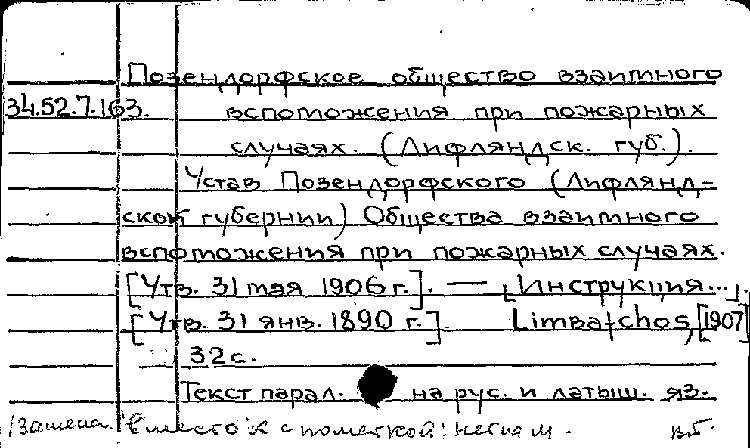 Позендорфское общество взаимного
34.52.7.163. вспоможения при пожарных
случаях. (Лифляндск. губ.).
Устав Позендорфского (Лифлянд-
ской губернии) Общества взаимного
вспоможения при пожарных случаях.
[Утв. 31 мая 1906 г.]. — [Инструкция...].
[Утв. 31 янв. 1890 г.]. Limbaschos, [1907]
32 с.
Текст парал. на рус. и латыш. яз.
Вместо К с пометкой: